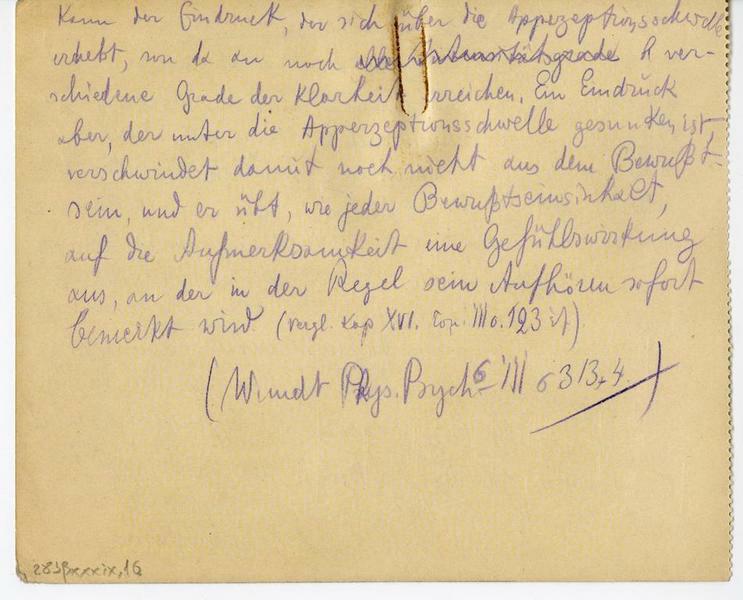 Kann der Eindruck, der sich über die Apperzeptionsschwelle
erhebt, von da an noch alle Intensitätsgrade ver-
schiedene Grade der Klarheit erreichen. Ein Eindruck
aber, der unter die Apperzeptionsschwelle gesunken ist,
verschwindet damit noch nicht aus dem Bewußt-
sein, und er übt, wie jeder Bewußtseinsinhalt,
auf die Aufmerksamkeit eine Gefühlswirkung
aus, an der in der Regel sein Aufhören sofort
bemerkt wird (vergl. Kap XVI. III 123 ff)
(Wundt Phys. Psych. 6 III 313+4)